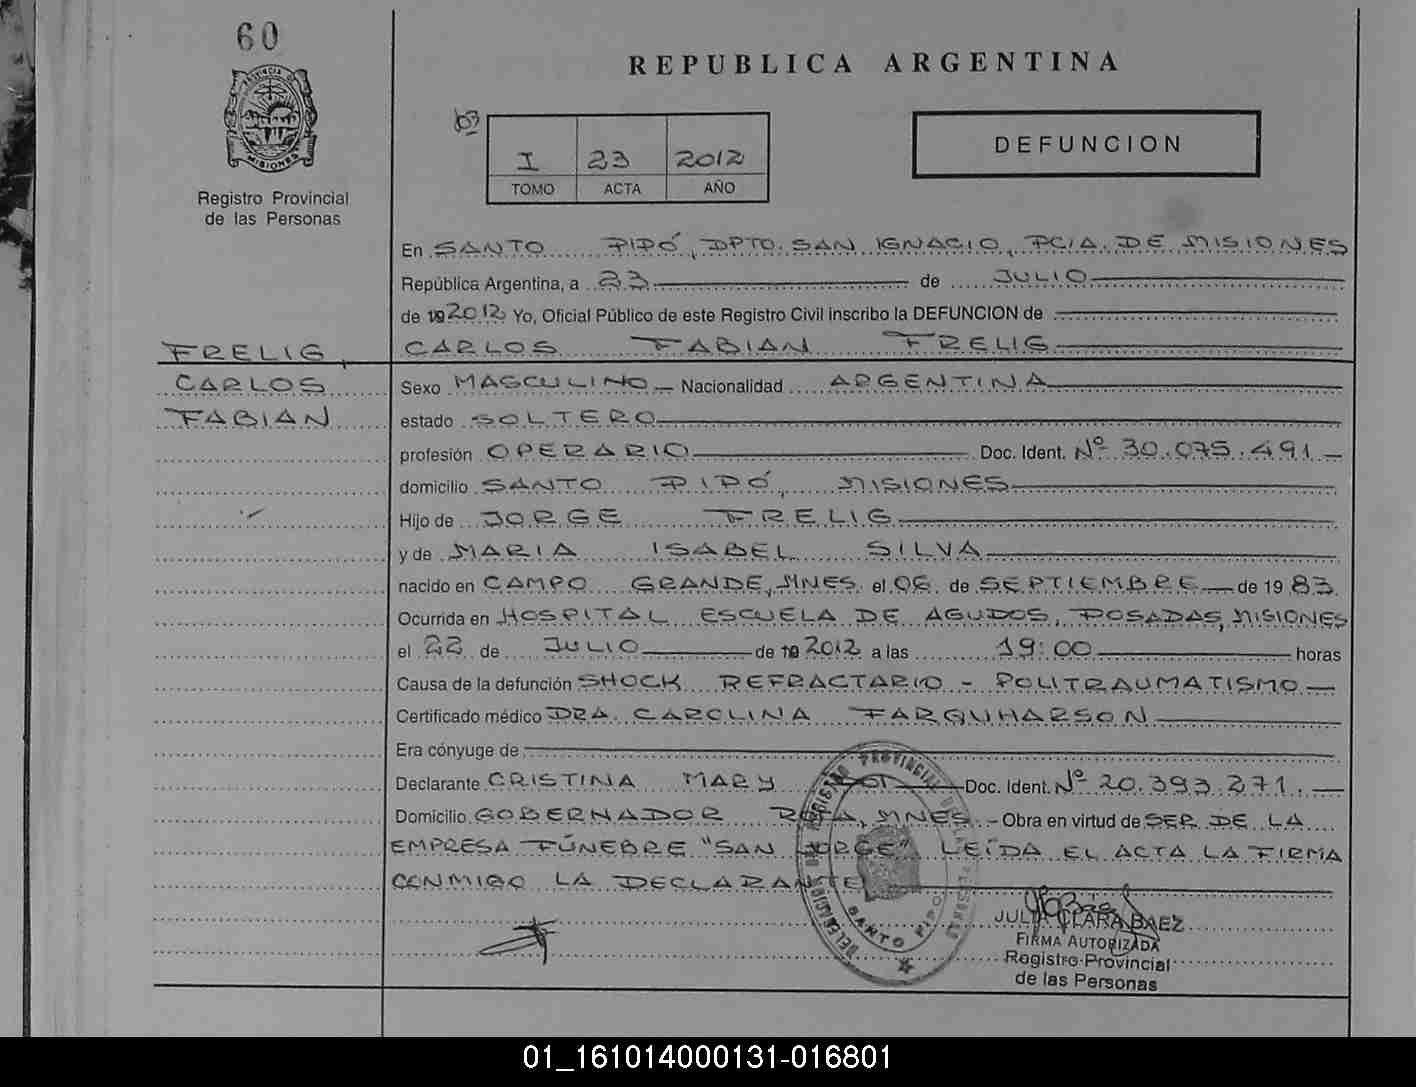 60
PROVINCIA DE
MISIONES
Registro Provincial
de las Personas
REPUBLICA ARGENTINA
03
I 23 2012
TOMO ACTA AÑO
DEFUNCION
En SANTO PIPÓ, DPTO. SAN IGNACIO, PCIA. DE MISIONES
República Argentina, a 23 de JULIO
de 192012 Yo, Oficial Público de este Registro Civil inscribo la DEFUNCION de
FRELIG, CARLOS FABIAN FRELIG
CARLOS Sexo MASCULINO Nacionalidad ARGENTINA
FABIAN estado SOLTERO
profesión OPERARIO Doc. Ident. Nº 30.075.491
domicilio SANTO PIPÓ, MISIONES
Hijo de JORGE FRELIG
y de MARIA ISABEL SILVA
nacido en CAMPO GRANDE, MNES. el 06 de SEPTIEMBRE de 1983.
Ocurrida en HOSPITAL ESCUELA DE AGUDOS, POSADAS, MISIONES
el 22 de JULIO de 192012 a las 19:00 horas
Causa de la defunción SHOCK REFRACTARIO - POLITRAUMATISMO
Certificado médico DRA. CAROLINA FARQUHARSON
Era cónyuge de
Declarante CRISTINA MARY Doc. Ident. Nº 20.393.271.
Domicilio GOBERNADOR ROCA, MNES - Obra en virtud de SER DE LA
EMPRESA FÚNEBRE "SAN JORGE" LEÍDA EL ACTA LA FIRMA
CONMIGO LA DECLARANTE
DELEGACION DEL REGISTRO PROVINCIAL DE LAS PERSONAS
SANTO PIPO
JULIA CLARA BAEZ
FIRMA AUTORIZADA
Registro Provincial
de las Personas
01_161014000131-016801